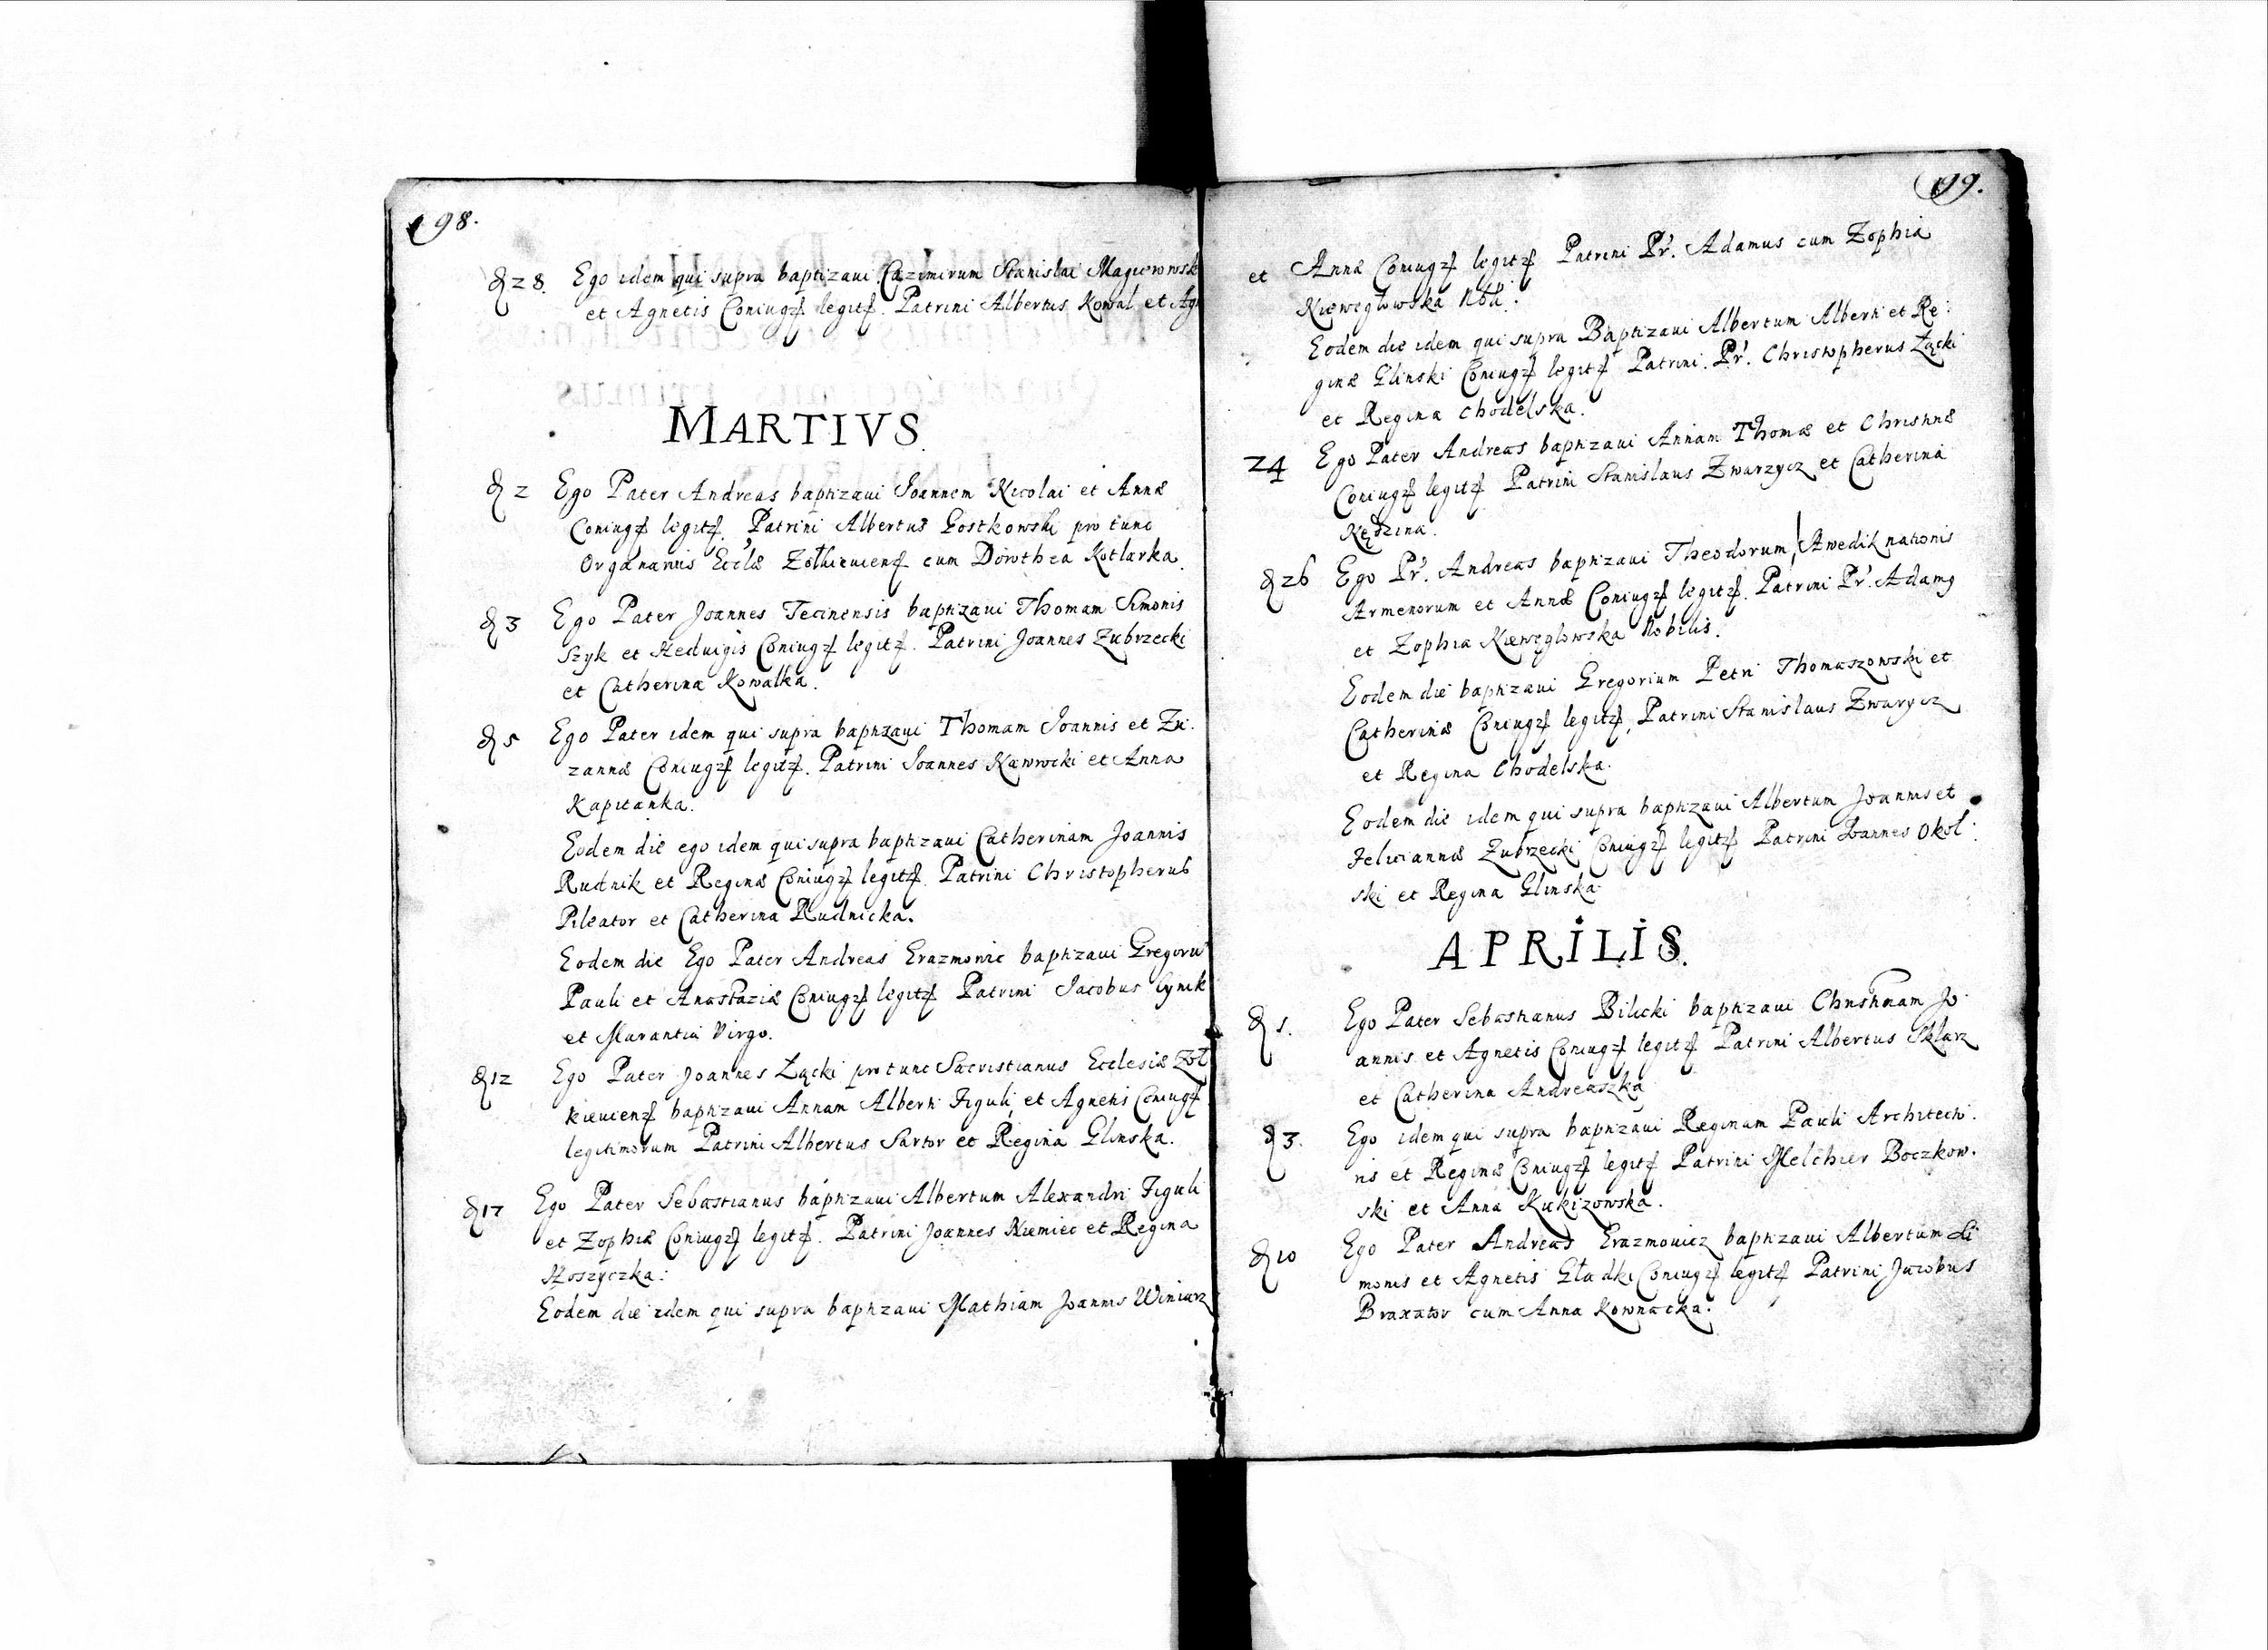 198.
28. Ego idem qui supra baptizaui Cazimirum Stanislai Magierowsk
et Agnetis Coniugꝝ legitꝝ. Patrini Albertus Kowal et Agn
MARTIVS.
2 Ego Pater Andreas baptizaui Joannem Nicolai et Annæ
Coniugꝝ legitꝝ. Patrini Albertus Gostkowski pro tunc
Organarius Eccłæ Zołkieuienꝝ cum Dorothea Kotlarka.
3 Ego Pater Joannes Tecinensis baptizaui Thomam Simonis
Szyk et Heduigis Coniugꝝ legitꝝ. Patrini Joannes Zubrzecki
et Catherina Kowalka.
5 Ego Pater idem qui supra baptizaui Thomam Joannis et Zu:
zannæ Coniugꝝ legitꝝ. Patrini Joannes Nawrocki et Anna
Kapitanka.
Eodem die ego idem qui supra baptizaui Catherinam Joannis
Rudnik et Reginæ Coniugꝝ legitꝝ. Patrini Christopherus
Pileator et Catherina Rudnicka.
Eodem die Ego Pater Andreas Erazmowic baptizaui Gregoriu
Pauli et Anastaziæ Coniugꝝ legitꝝ Patrini Jacobus Cynik
et Marantia Virgo.
12 Ego Pater Joannes Łącki pro tunc Sacristianus Ecclesiæ Zoł
kieuienꝝ baptizaui Annam Alberti Figuli et Agnetis Coniugꝝ
legitimorum Patrini Albertus Sartor et Regina Glinska.
17 Ego Pater Sebastianus baptizaui Albertum Alexandri Figuli
et Zophiæ Coniugꝝ legitꝝ. Patrini Joannes Niemiec et Regina
Eodem die idem qui supra baptizaui Mathiam Joannis Winiarz
199.
et Annæ Coniugꝝ legitꝝ Patrini Pr. Adamus cum Zophia
Niewęgłowska Nbli.
Eodem die idem qui supra Baptizaui Albertum Alberti et Re:
ginæ Glinski Coniugꝝ legitꝝ Patrini. Pr. Christopherus Łącki
et Regina Chodelska.
24 Ego Pater Andreas baptizaui Annam Thomæ et Christinæ
Coniugꝝ legitꝝ Patrini Stanislaus Zwarzycz et Catherina
Kędzina.
26 Ego Pr. Andreas baptizaui Theodorum, Awedik nationis
Armenorum et Annæ Coniugꝝ legitꝝ. Patrini Pr. Adamꝯ
et Zophia Niewęglowska Nobilis.
Eodem die baptizaui Gregorium Petri Thomaszowski et
Catherinæ Coniugꝝ legitꝝ, Patrini Stanislaus Zwarycz
et Regina Chodelska.
Eodem die idem qui supra baptizaui Albertum Joannis et
Feliciannæ Zubrzecki Coniugꝝ legitꝝ Patrini Joannes Okol:
ski et Regina Glinska.
APRILIS.
1. Ego Pater Sebastianus Bilicki baptizaui Christinam Jo:
annis et Agnetis Coniugꝝ legitꝝ Patrini Albertus Sklarz
et Catherina Andreaszka
3. Ego idem qui supra baptizaui Reginam Pauli Architecto:
nis et Reginæ Coniugꝝ legitꝝ Patrini Melchier Boczkow:
ski et Anna Kukizowska.
10 Ego Pater Andreas Erazmouicz baptizaui Albertum Si
monis et Agnetis Gładki Coniugꝝ legitꝝ Patrini Jacobus
Braxator cum Anna Kownacka.